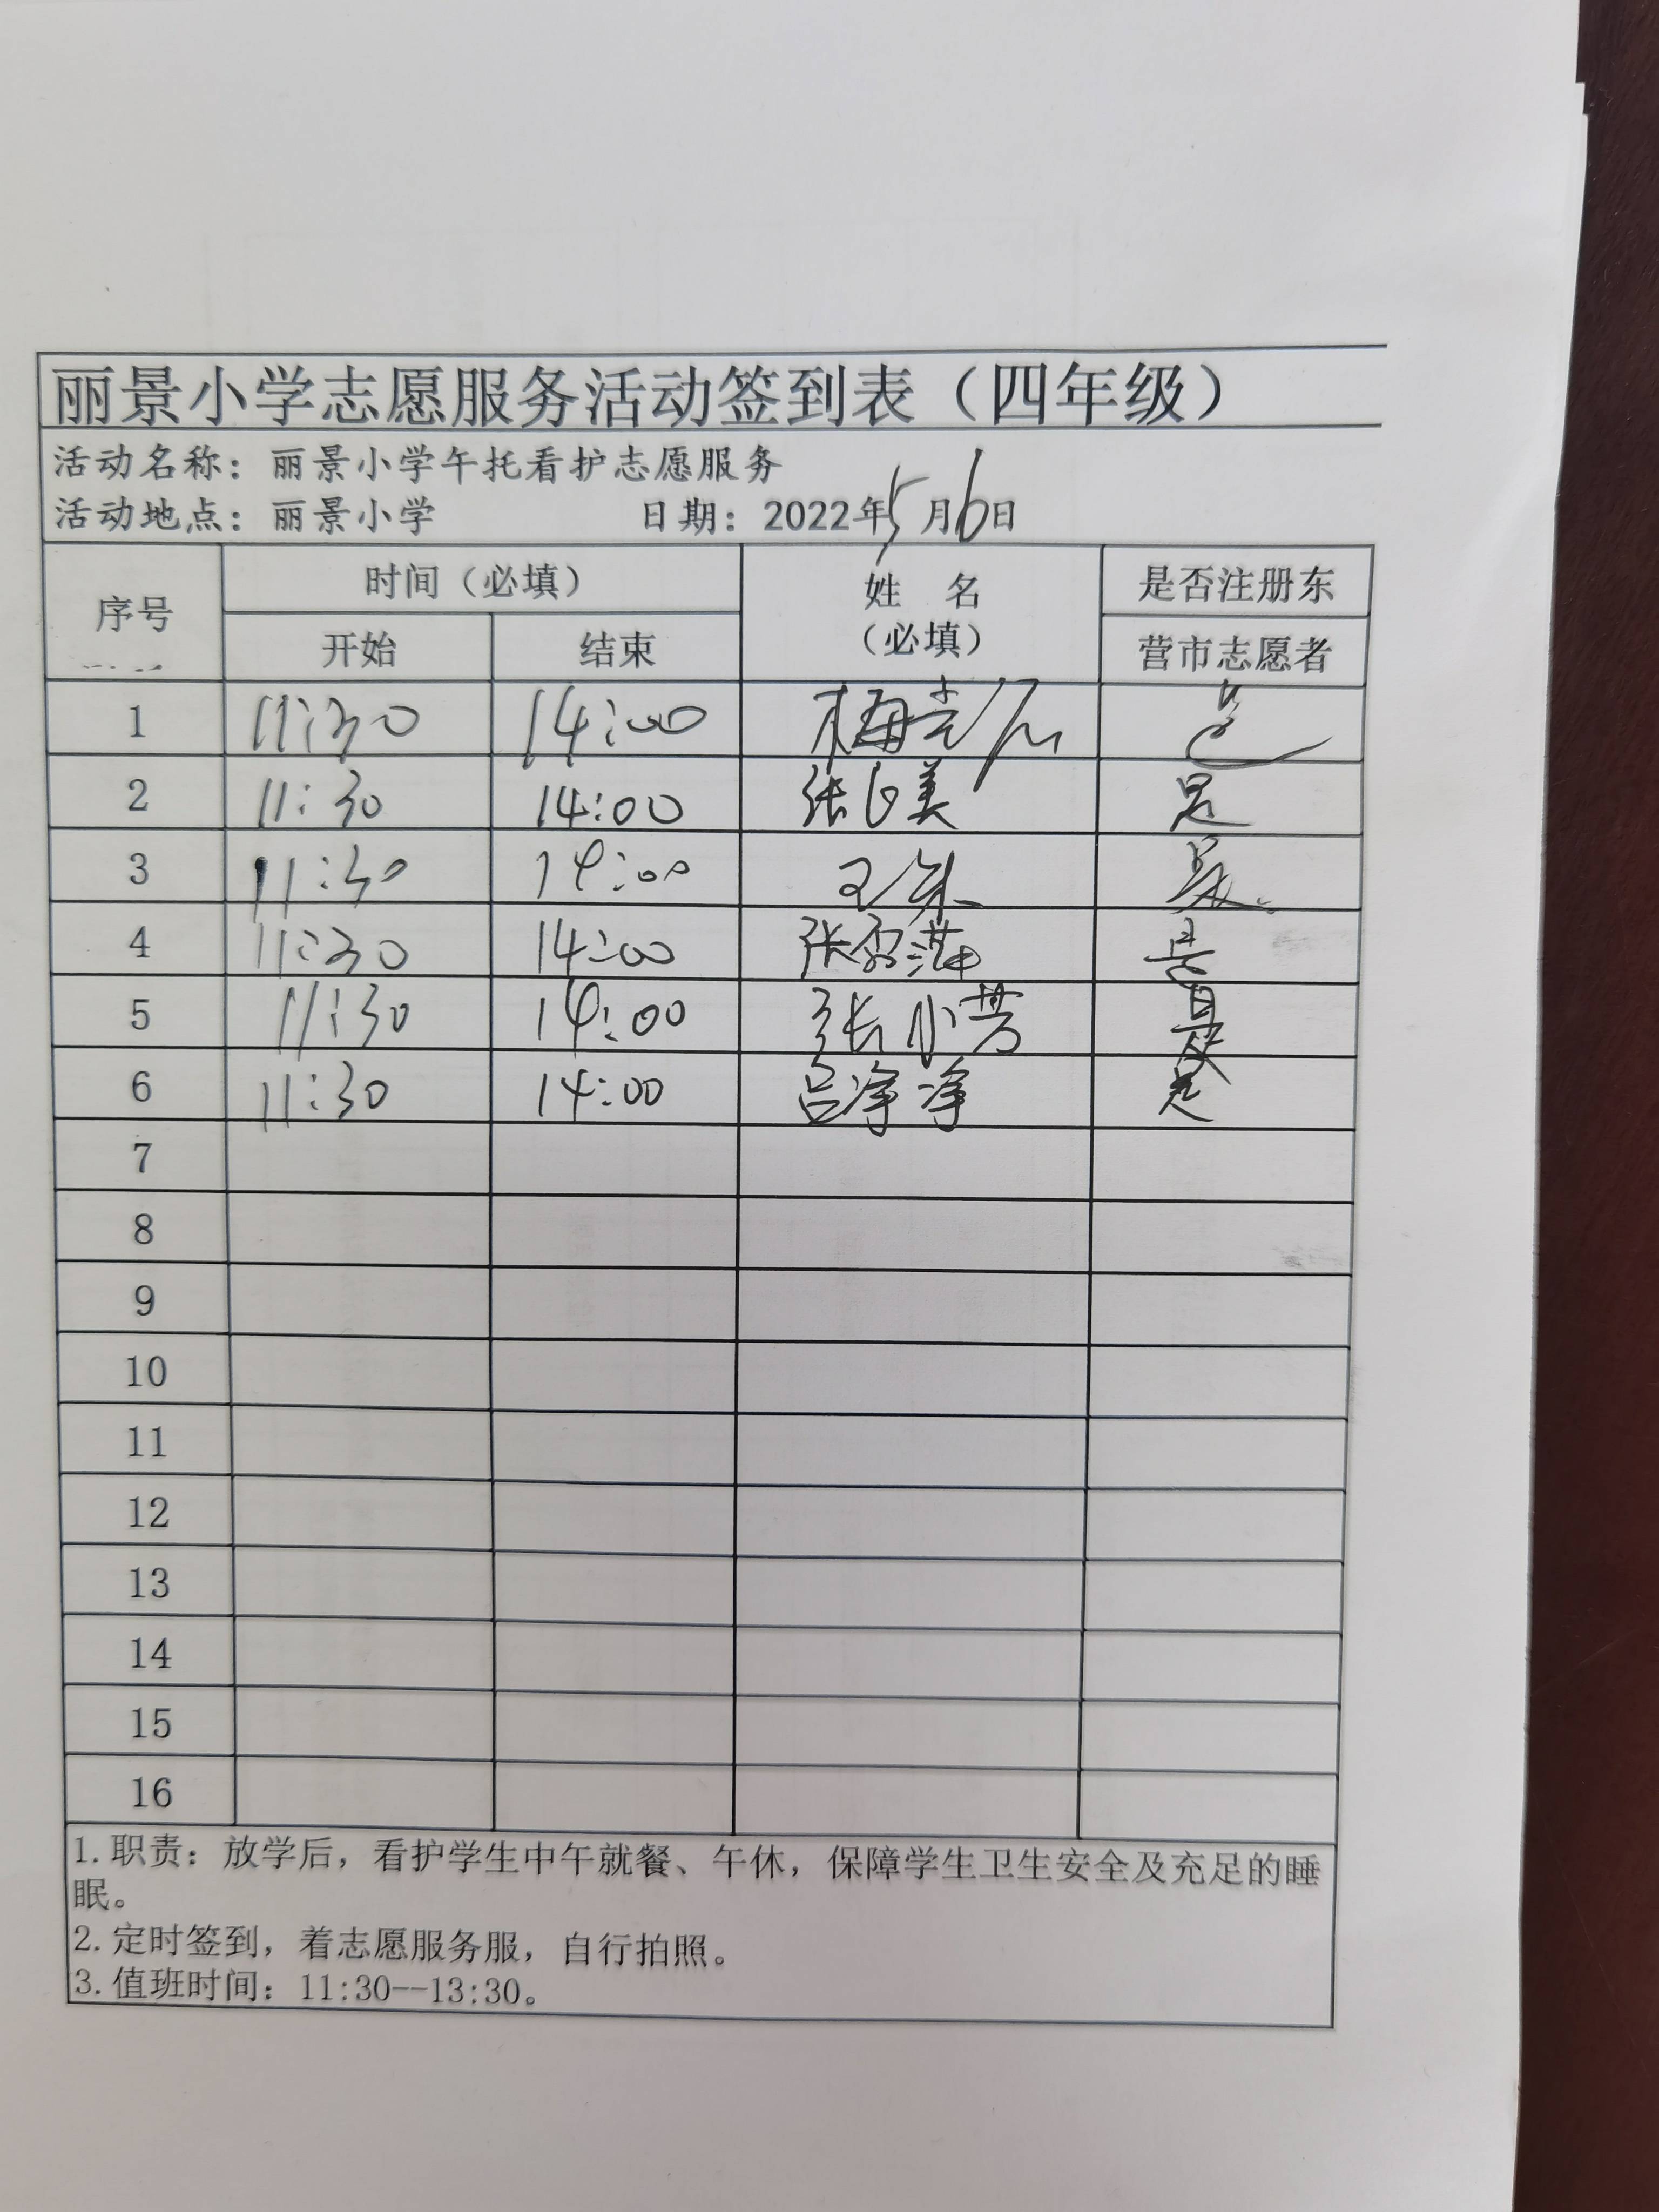 丽景小学志愿服务活动签到表（四年级）
活动名称：丽景小学午托看护志愿服务
活动地点：丽景小学 日期：2022年5月6日
序号 时间（必填） 姓 名 是否注册东
开始 结束 （必填） 营市志愿者
1 11:30 14:00 梅 是
2 11:30 14:00 张 美 是
3 11:30 14:00 王 是
4 11:30 14:00 张 萍 是
5 11:30 14:00 张小芳 是
6 11:30 14:00 吕净净 是
7
8
9
10
11
12
13
14
15
16
1.职责：放学后，看护学生中午就餐、午休，保障学生卫生安全及充足的睡
眠。
2.定时签到，着志愿服务服，自行拍照。
3.值班时间：11:30--13:30。